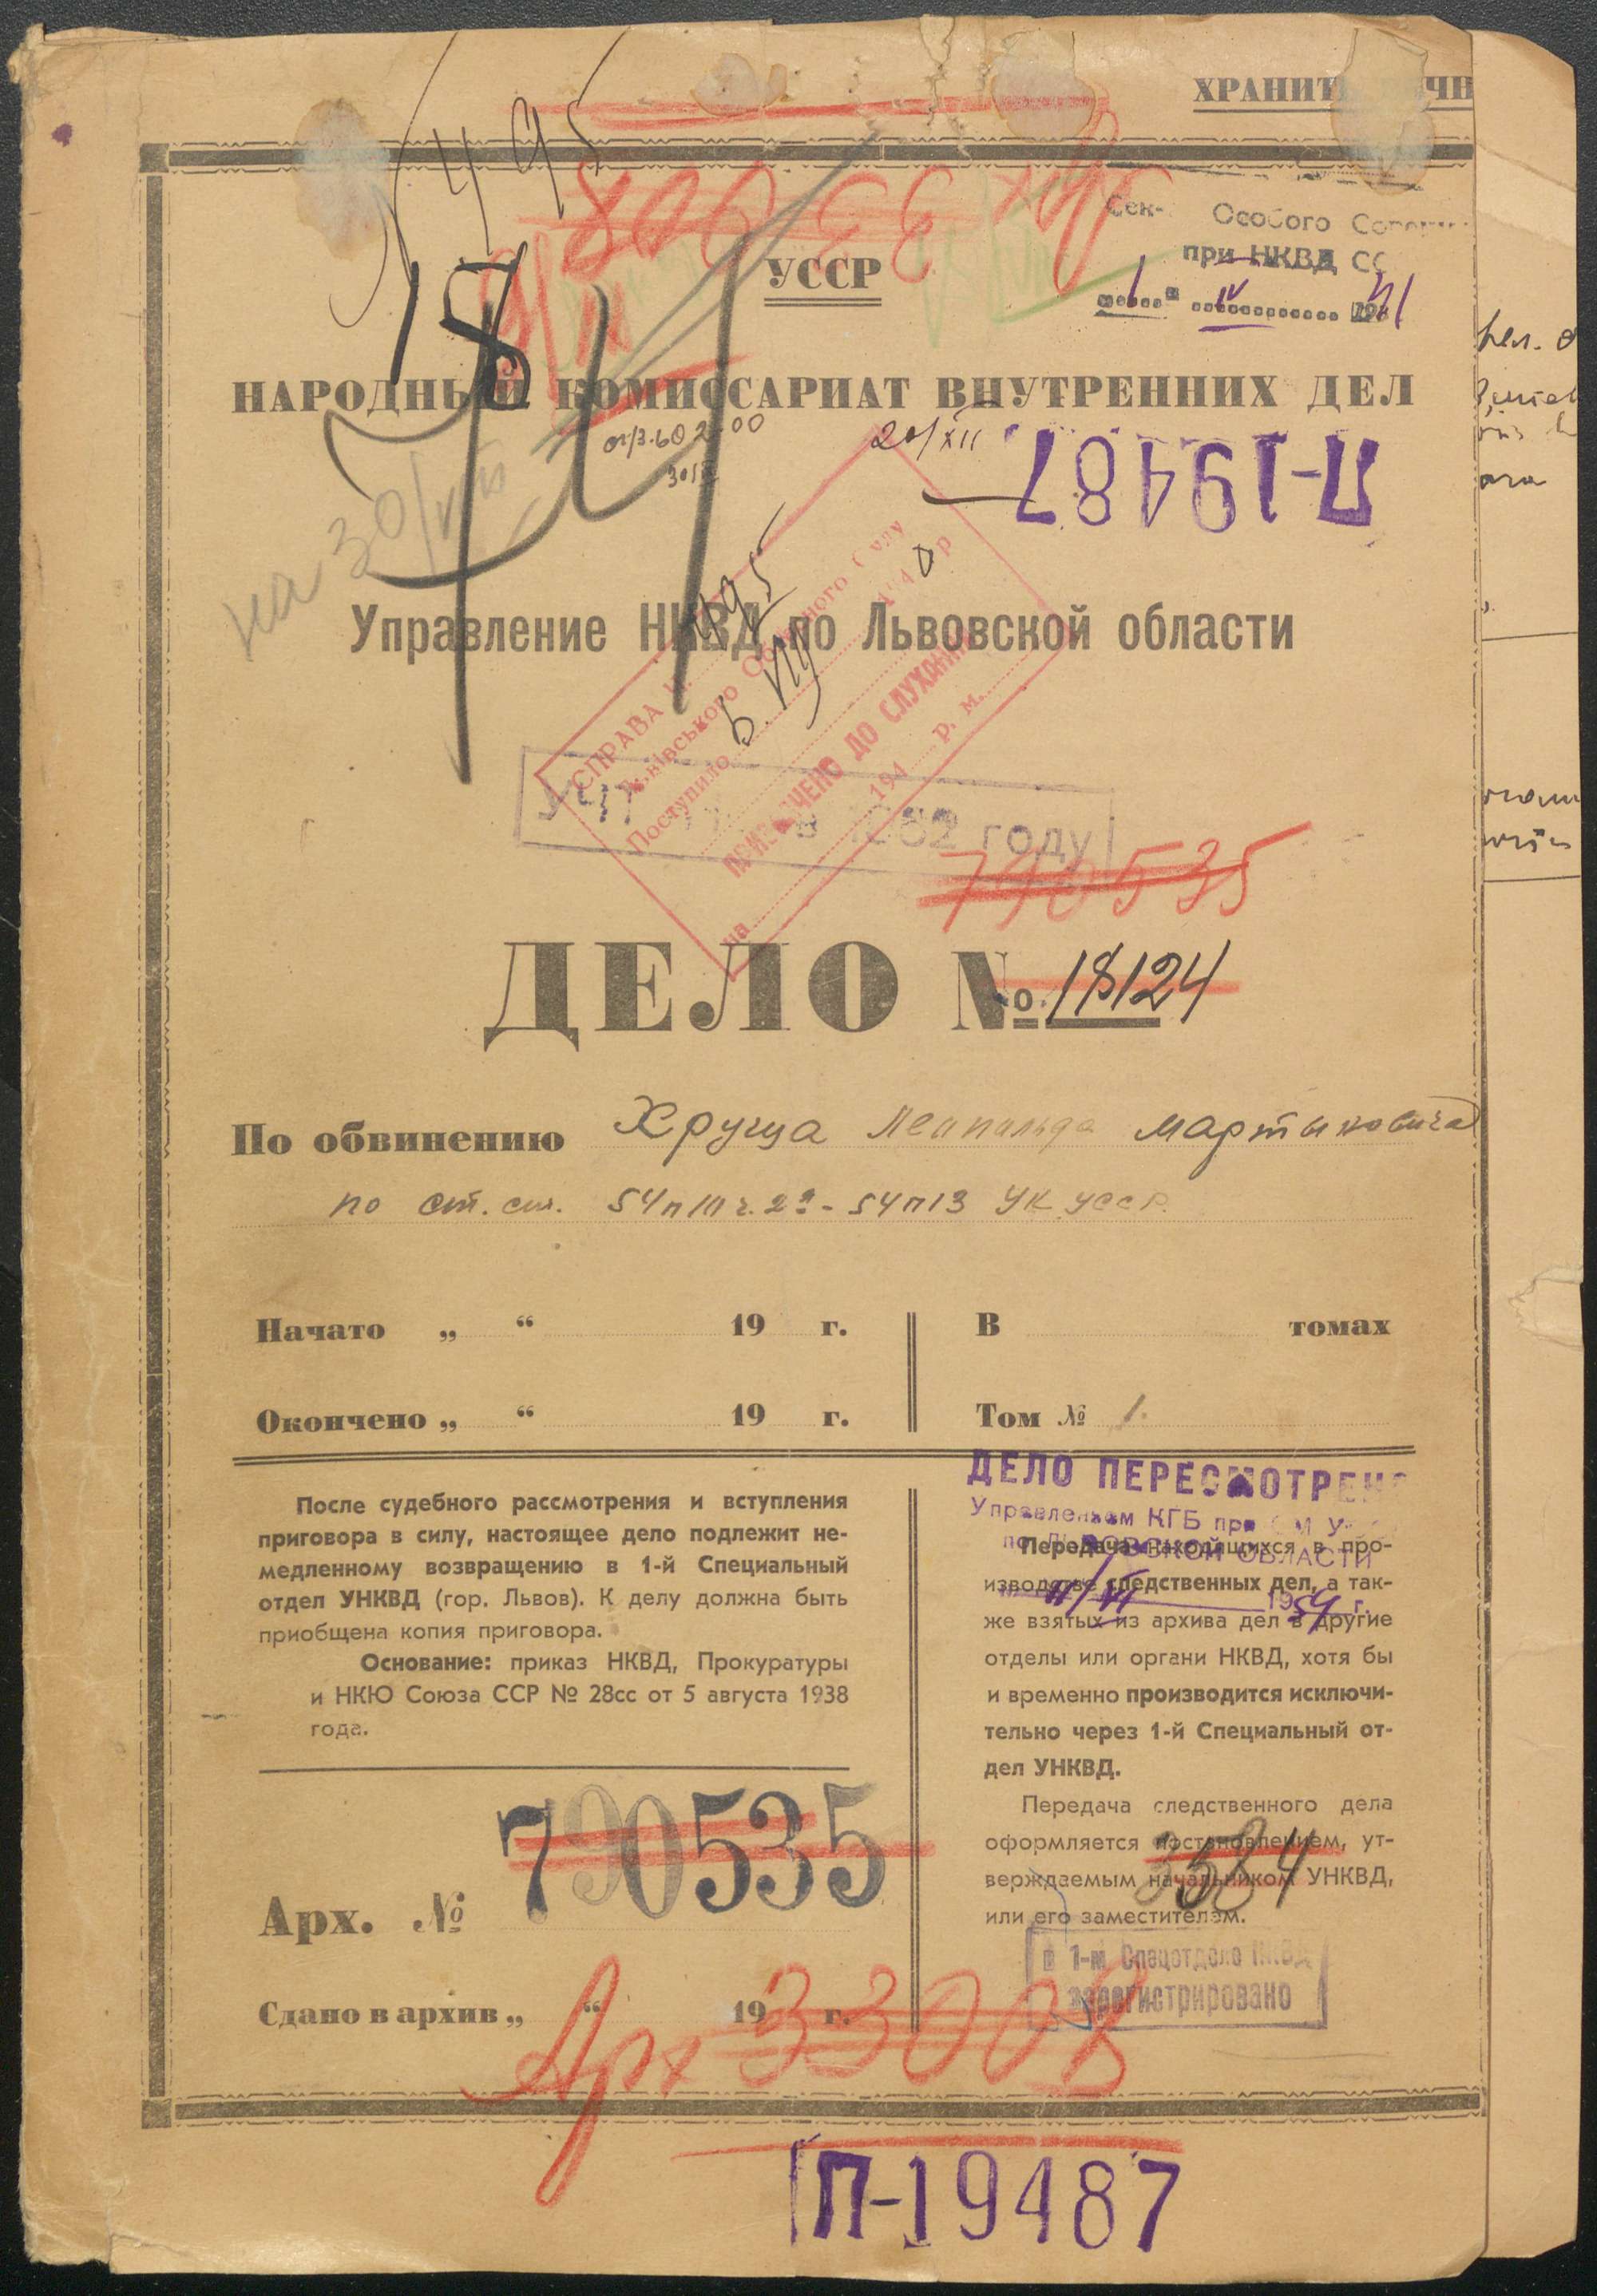 ХРАНИТЬ
495
Арх 33008
УССР
Особого
при НКВД СС
1 IV 1941
18
НАРОДНЫЙ КОМИССАРИАТ ВНУТРЕННИХ ДЕЛ
20/XII
П-19487
на 30/VII
Управление НКВД по Львовской области
СПРАВА
Львівського Обласного Суду
495
Поступило 194 р
ПРИЗНАЧЕНО ДО СЛУХАННЯ
на 194 р. м.
1962 году
790535
ДЕЛО № 18124
По обвинению Хруща Леопольда Мартыновича
по ст. ст. 54п13 УК УССР.
Начато „ “ 19 г.
Окончено „ “ 19 г.
В томах
Том № 1.
После судебного рассмотрения и вступления
приговора в силу, настоящее дело подлежит не-
медленному возвращению в 1-й Специальный
отдел УНКВД (гор. Львов). К делу должна быть
приобщена копия приговора.
Основание: приказ НКВД, Прокуратуры
и НКЮ Союза ССР № 28сс от 5 августа 1938
года.
790535
Арх. №
Сдано в архив „ “ 19 г.
ДЕЛО ПЕРЕСМОТРЕНО
Управлением КГБ при СМ
по ЛЬВОВСКОЙ ОБЛАСТИ
11/VI 1954 г.
Передача находящихся в про-
изводстве следственных дел, а так-
же взятых из архива дел в другие
отделы или органи НКВД, хотя бы
и временно производится исключи-
тельно через 1-й Специальный от-
дел УНКВД.
Передача следственного дела
оформляется постановлением, ут-
верждаемым начальником УНКВД,
или его заместителем.
3584
в 1-м Спецотделе НКВД
зарегистрировано
Арх 33008
П-19487